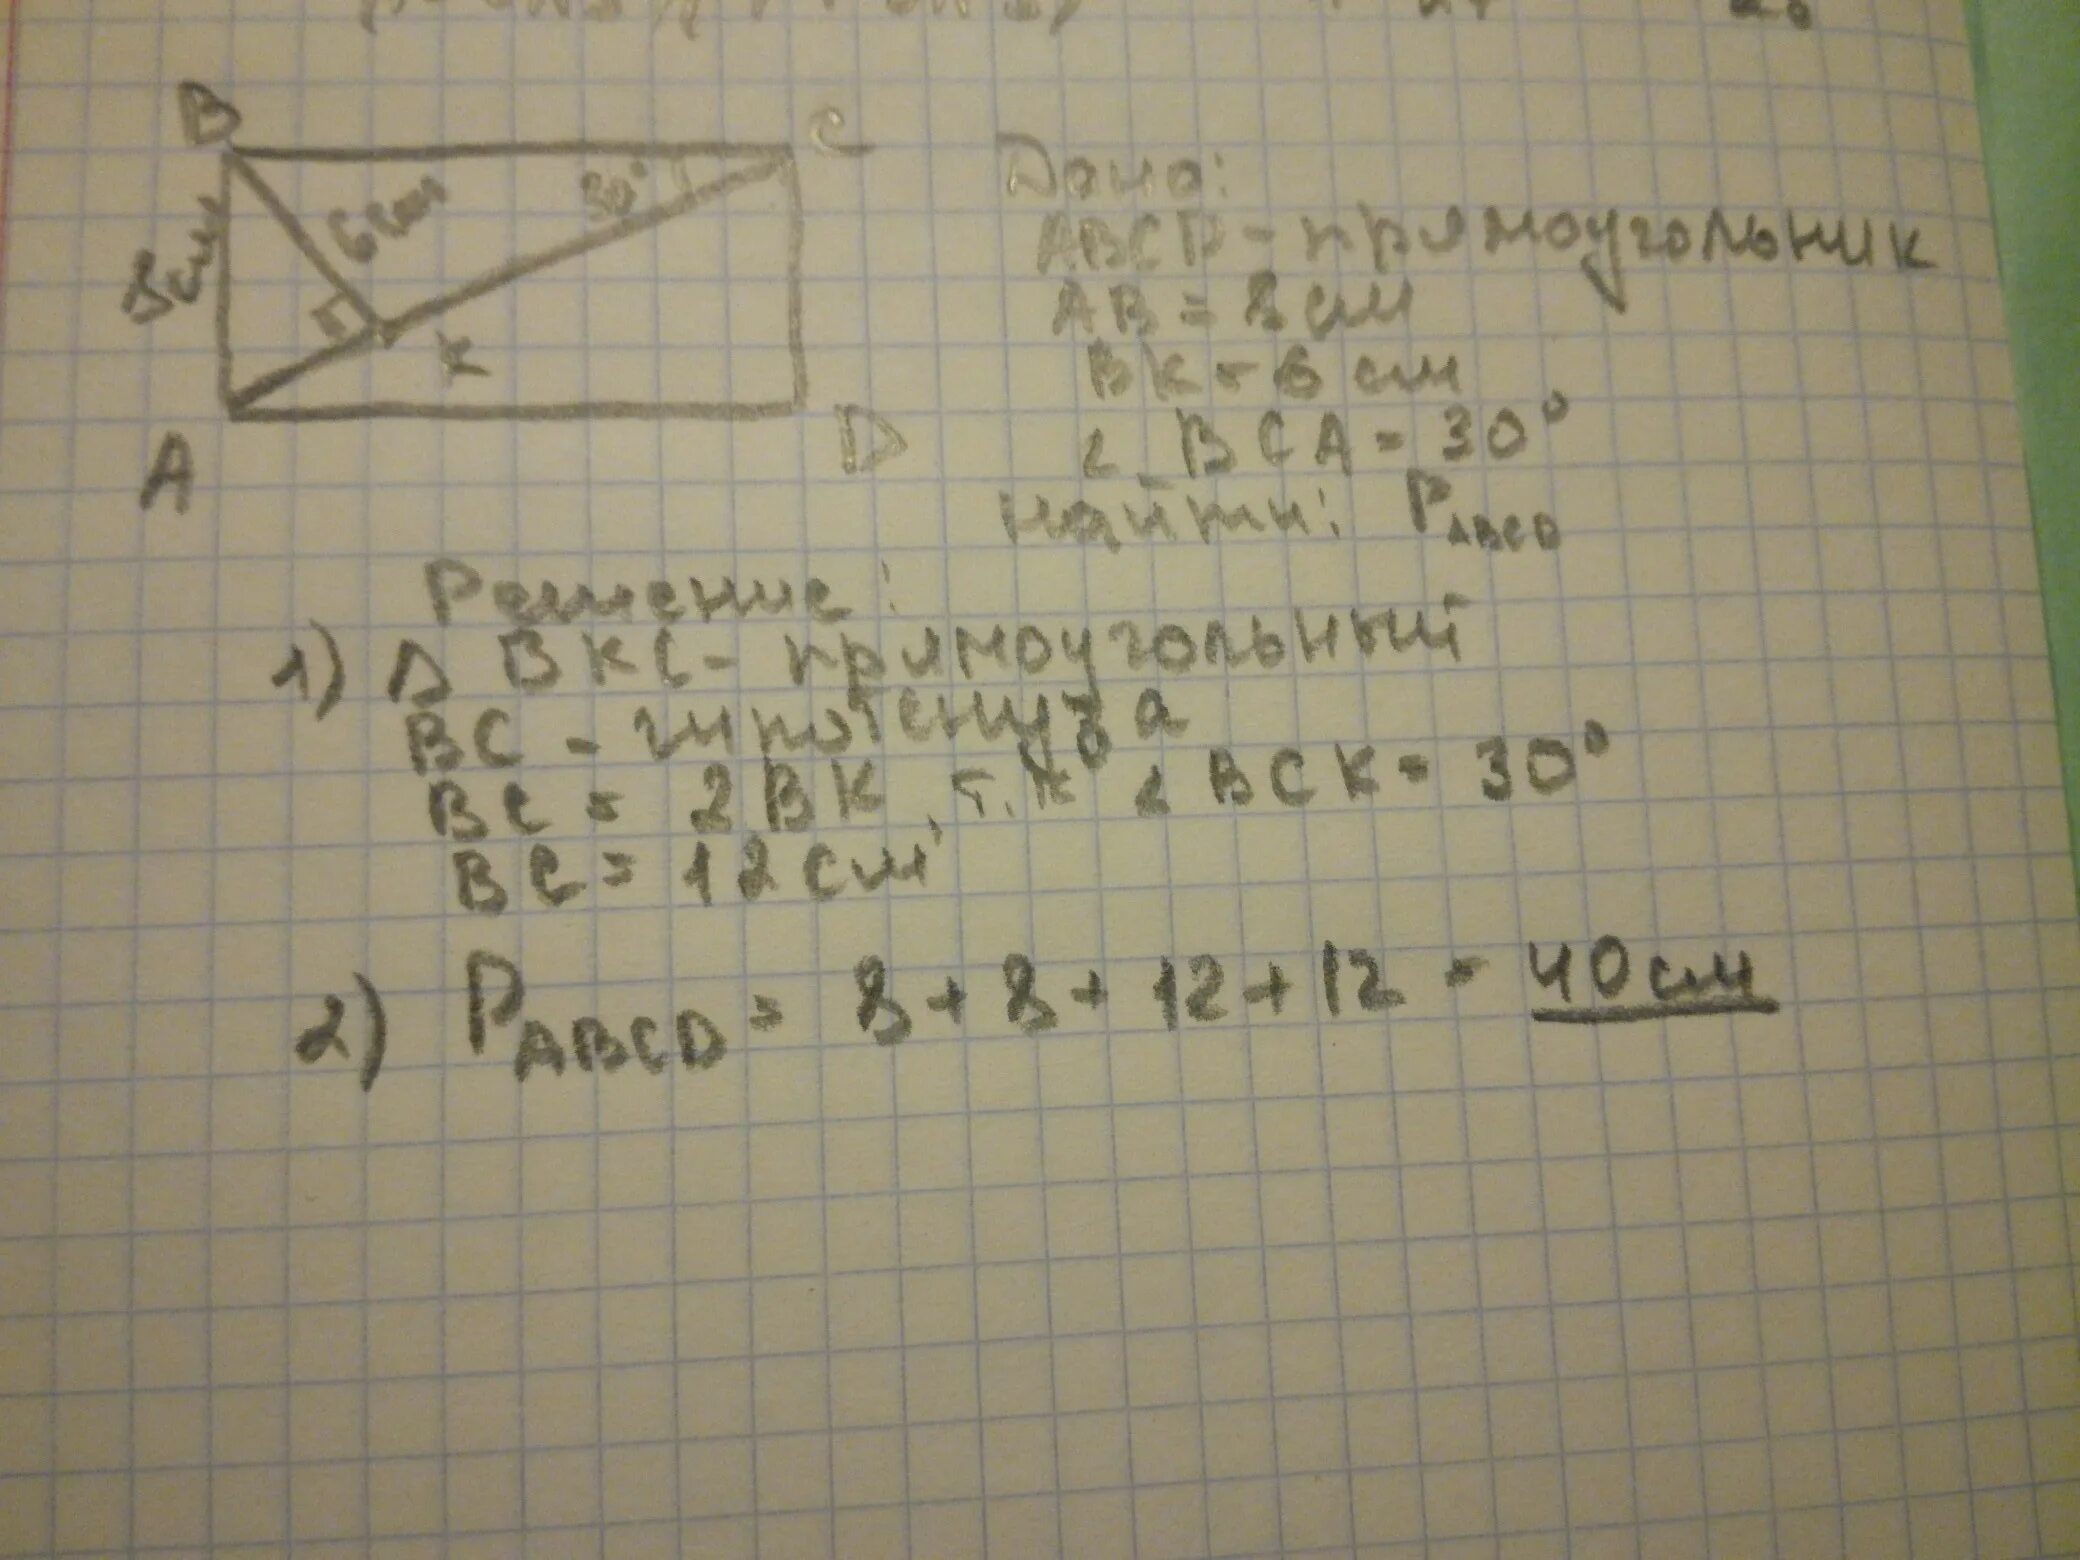 B
C
8см
6см
30°
K
A
D
Дано:
ABCD - прямоугольник
AB = 8 см
BK = 6 см
∠ BCA = 30°
Найти: P ABCD
Решение:
1) Δ BKC - прямоугольный
BC - гипотенуза
BC = 2BK, т.к ∠ BCK = 30°
BC = 12 см
2) P ABCD = 8 + 8 + 12 + 12 = 40 см